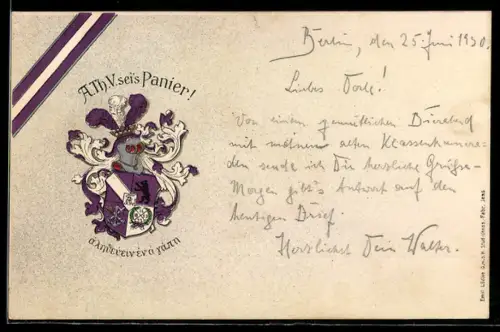 A.Th.V. seï's Panier!
ἀληθεύειν ἐν ἀγάπῃ
Berlin, den 25. Juni 1930.
Liebes
Von einem gemütlichen Bierabend
mit meinen alten Klassenkamera-
den sende ich Dir herzliche Grüsse.
Morgen gibt's Antwort auf den
heutigen Brief.
Herzlichst Dein Walter.
Emil Lüdke
Jena